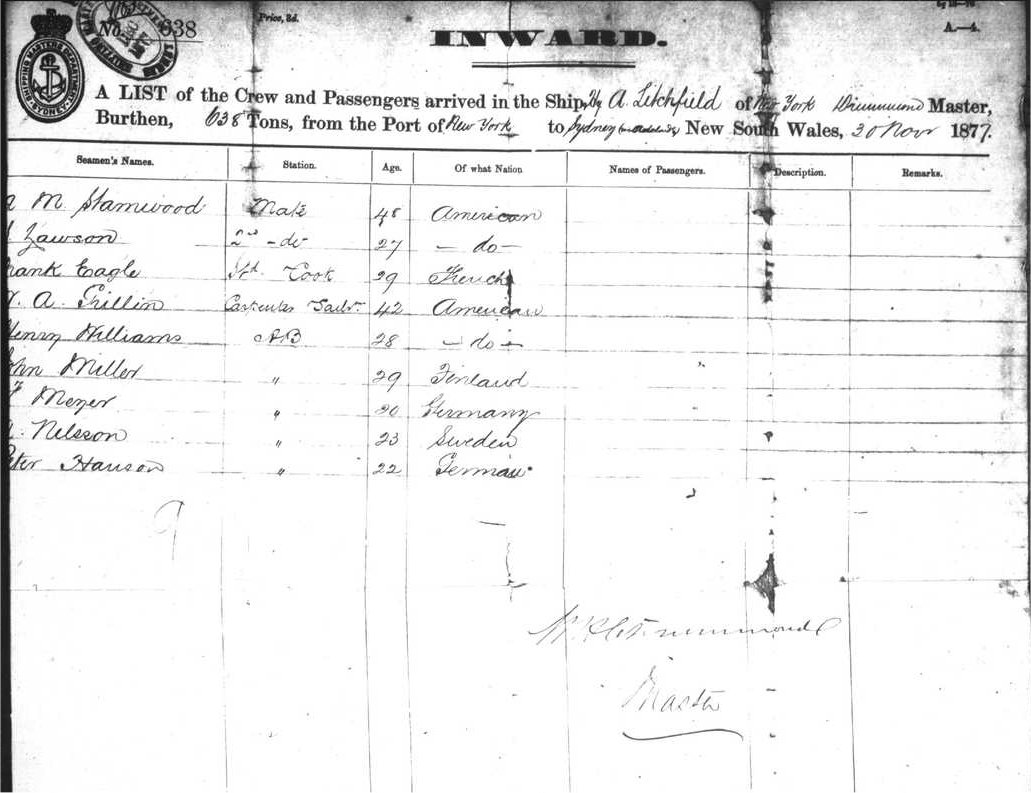 No. 638
Price, 3d.
A.—4.
SHIPPING MASTERS DEPARTMENT SYDNEY
INWARD.
A LIST of the Crew and Passengers arrived in the Ship, A. Litchfield of New York Drummond Master,
Burthen, 638 Tons, from the Port of New York to Sydney New South Wales, 30 Novr 1877.
Seamen's Names. Station. Age. Of what Nation Names of Passengers. Description. Remarks.
M. Stamwood Mate 48 American
Lawson 2nd do 27 — do —
rank Eagle Std. Cook 29 French
A. Grillin Carpenter Sailr. 42 American
Henry Williams AB 28 — do —
John Miller " 29 Finland
Meyer " 20 Germany
Nelsson " 23 Sweden
eter Hanson " 22 German
9
Drummond
Master